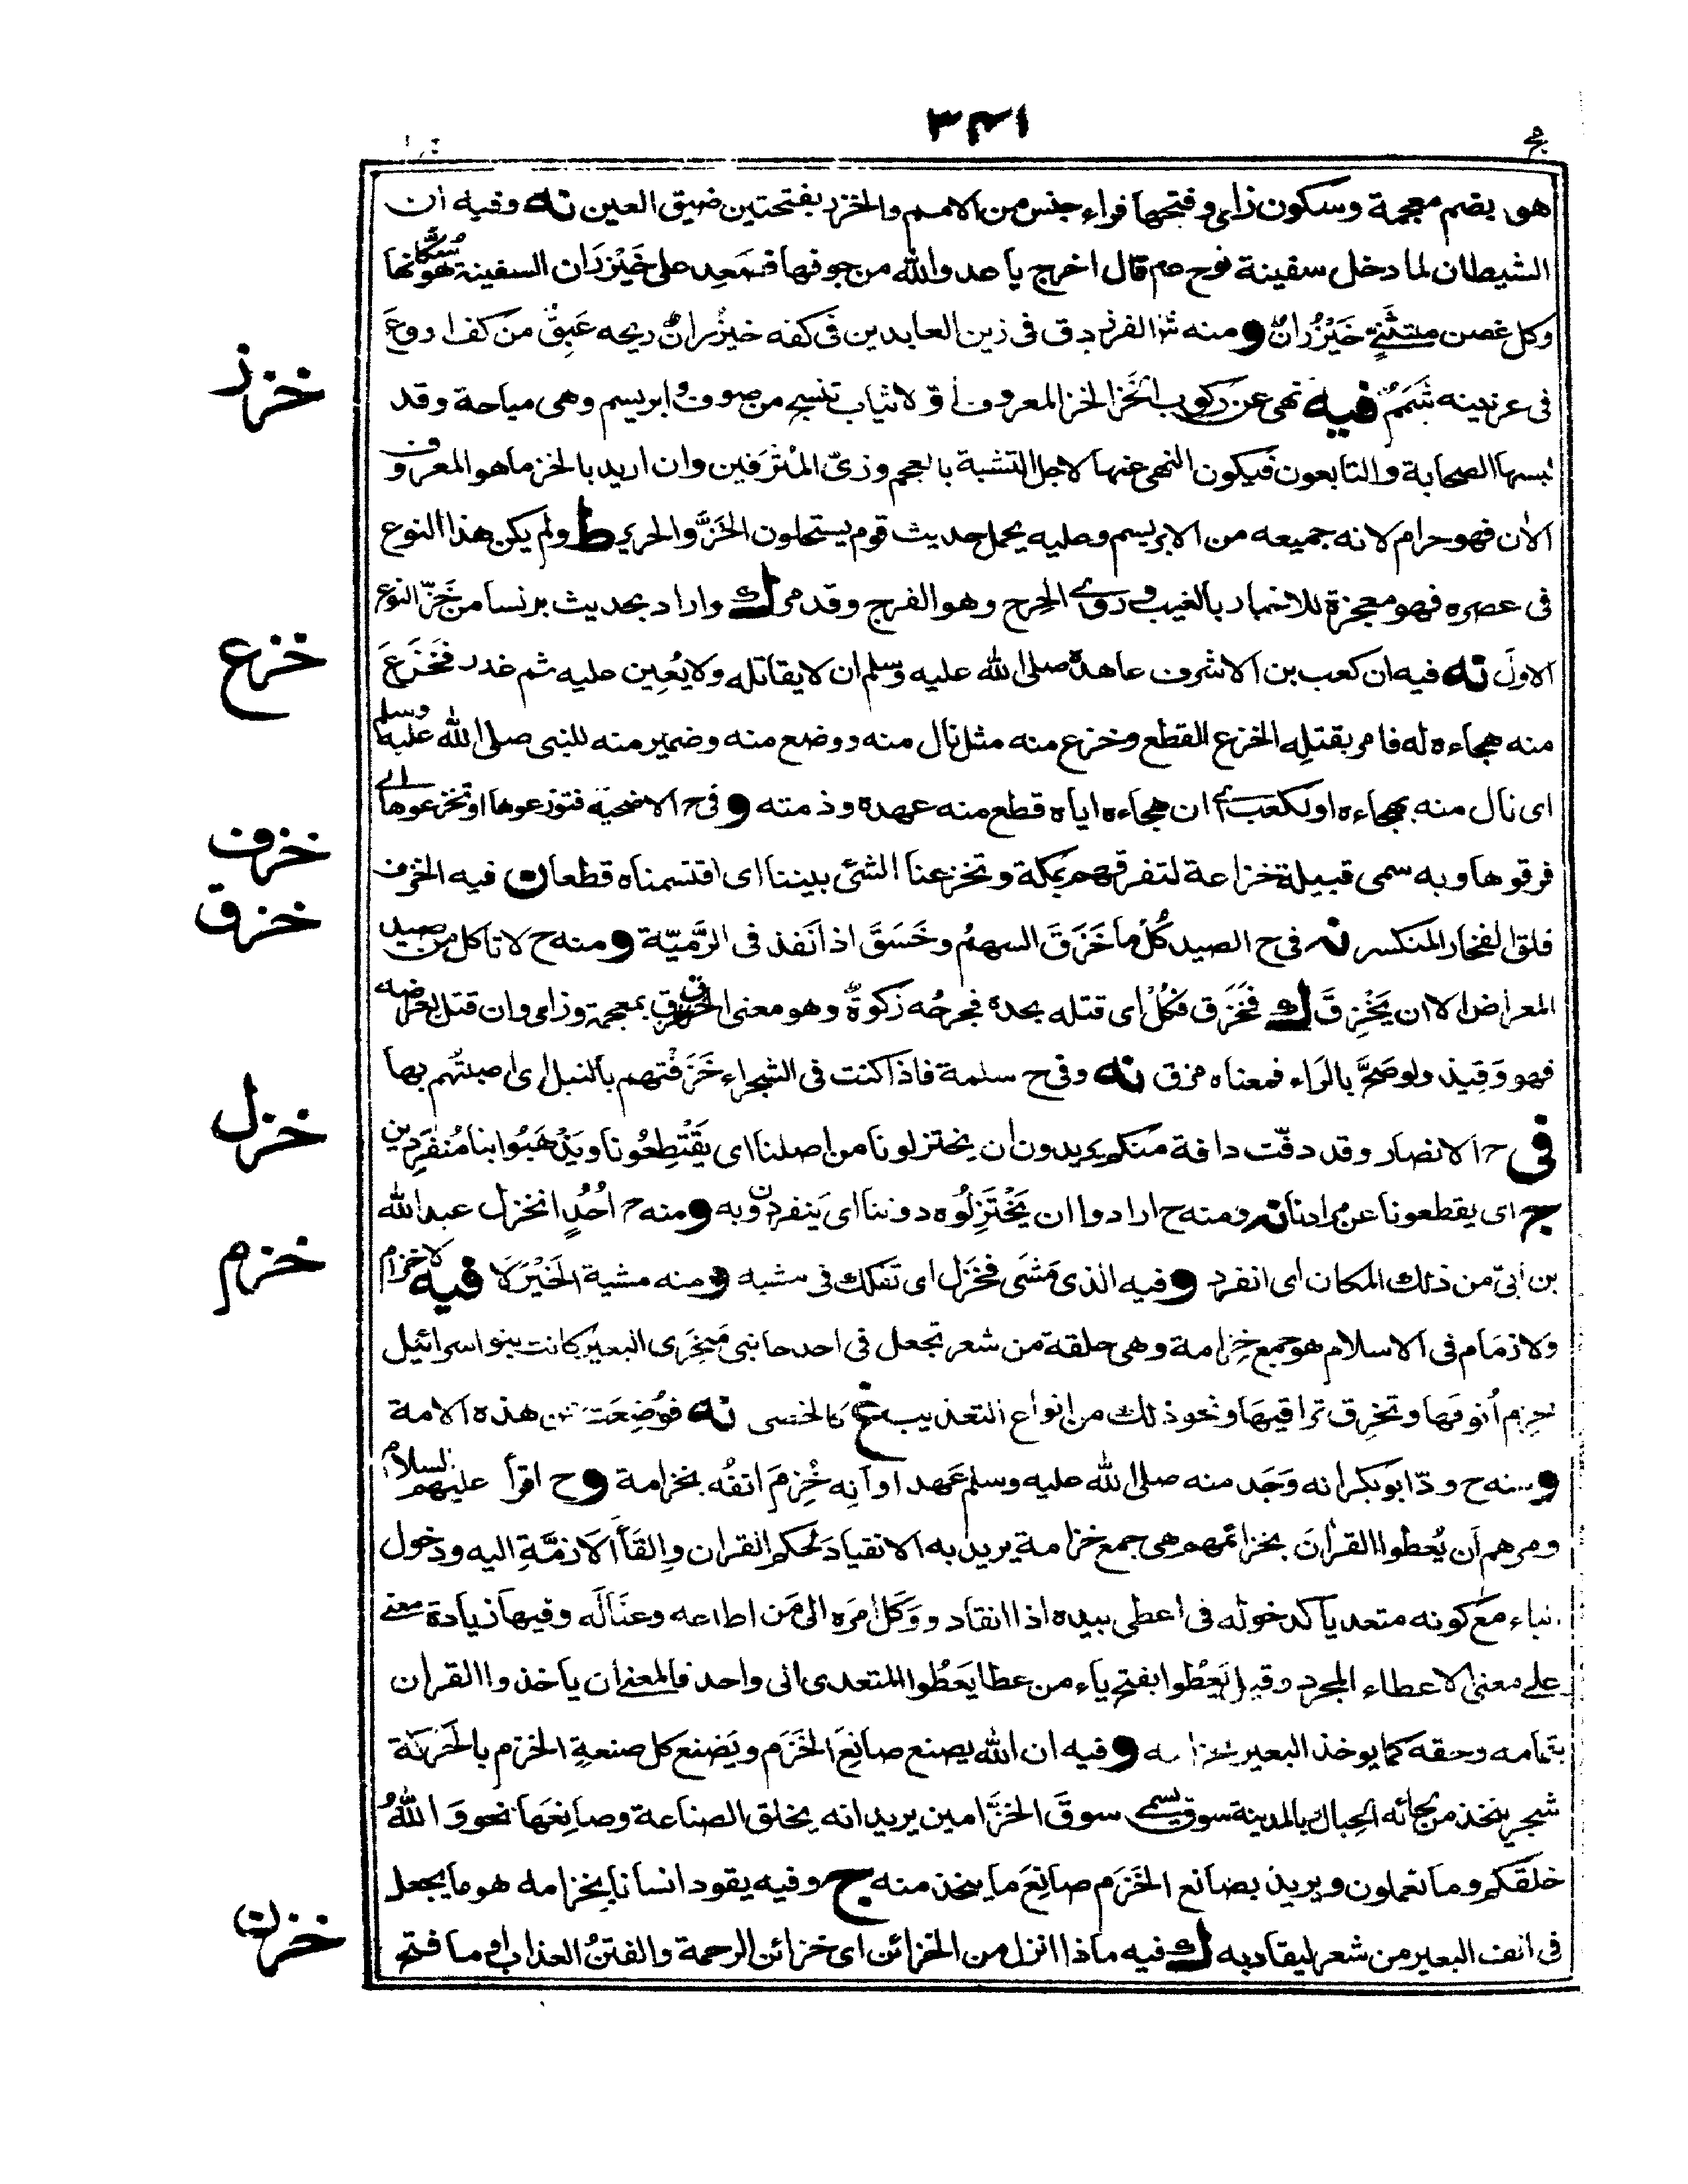 ٣٤١
هو بضم معجمة وسكون زاى وفتحها فراء جنس من الامم والخزر بفتحتين ضيق العين نه وفيه ان
الشيطان لما دخل سفينة نوح عم قال اخرج يا عدو الله من جوفها فصَعِد على خَيْزرَان السفينة هو سُكَّانها
وكل غصن متثنٍّ خَيْزُرانٌ ومنه شعر الفرزدق فى زين العابدين فى كفه خيزُرانٌ ريحه عَبِقٌ من كف اروعَ
فى عرنينه شَمَمٌ فيه نهى عن ركوب الخَزّ الخز المعروف اوّلا ثياب تنسج من صوف وابريسم وهى مباحة وقد
لبسها الصحابة والتابعون فيكون النهى عنها لاجل التشبة بالعجم وزىّ المُتْرَفين وان اريد بالخز ما هو المعروف
الان فهو حرام لانه جميعه من الابريسم وعليه يحمل حديث قوم يستحلون الخَزَّ والحرير ط ولم يكن هذا النوع
فى عصره فهو معجزة للاخبار بالغيب وروى الحِرح وهو الفرج وقد مر ك واراد بحديث برنسا من خَزّ النوع
الاول نه فيه ان كعب بن الاشرف عاهده صلى الله عليه وسلم ان لا يقاتله ولا يُعِين عليه ثم غدر فخَزَعَ
منه هجاءه له فامر بقتله الخزع القطع وخزع منه مثل نال منه ووضع منه وضمير منه للنبى صلى الله عليه وسلم
اى نال منه بهجاءه او لكعب اى ان هجاءه اياه قطع منه عهده وذمته و فى ح الاضحية فتوزعوها او تخزعوها اى
فرقوها وبه سمى قبيلة خزاعة لتفرقهم بمكة وتخزعنا الشئ بيننا اى اقتسمناه قطعا ن فيه الخزف
فلق الفخار المنكسر نه فى ح الصيد كُلْ ما خَزَقَ السهمُ وخَسَقَ اذا نفذ فى الرَّمِيّة ومنه ح لا تاكل من صيد
المعراض الا ان يَخْزِقَ ك فخَزَق فكُلْ اى قتله بحده فجرحُه زكوةٌ وهو معنى الخزق بمعجمة وزاى وان قتل بعرضه
فهو وَقِيذ ولو صَحَّ بالراء فمعناه مزق نه وفى ح سلمة فاذا كنت فى الشجراء خَزَقْتهم بالنبل اى اصبتُهم بها
فى ح الانصار وقد دفّت دافة منكم يريدون ان يختزلونا من اصلنا اى يَقْتَطِعُونا ويَذْهَبُوا بنا مُنْفَرِدِين
ج اى يقطعونا عن مرادنا نه ومنه ح ارادوا ان يَخْتَزِلُوه دوننا اى ينفردون به ومنه ح اُحُدٍ انخزل عبد الله
بن ابىّ من ذلك المكان اى انفرد وفيه الذى مَشَى فخَزَل اى تفكك فى مشيه ومنه مشية الخَيْزَلا فيه لا خزام
ولا زمَام فى الاسلام هو جمع خِزامة وهى حلقة من شعر تجعل فى احد جانبى مَنخِرَى البعير كانت بنو اسرائيل
تخزم اُنوفَها وتخرق تراقيهَا ونحو ذلك من انواع التعذيب غ كالخصى نه فوُضِعَت عن هذه الامة
ومنه ح ودّ ابو بكر انه وَجَد منه صلى الله عليه وسلم عَهد او انه خُزِمَ انفُه بخزامة وح اقرأ عليهم السلام
ومرهم ان يُعطوا القرآنَ بخزائمهم هى جمع خزامة يريد به الانقيادَ لحكم القران والقاَ الازمّةِ اليه ودخول
الباء مَعَ كونه متعديا كدخوله فى اعطى بيده اذا انقاد ووَكَل امرَه الى مَن اطاعه وعنَا لَه وفيها زيادة معنى
على معنى الاعطاء المجرد وقيل يَعْطُوا بفتح ياء من عطا يَعطُوا المتعدى الى واحد فالمعنى ان ياخذوا القران
بتمامه وحقه كما يوخذ البعير بخزامه وفيه ان الله يصنع صانِعَ الخَزَم ويَصْنع كل صنعةٍ الخزم بالحَركة
شجر يتخذ من لحائه الحبال بالمدينة سوق يسمى سوقَ الخزَّامين يريد انه يخلق الصناعة وصانِعَها نحو وَاللهُ
خلقكم وما تعملون ويريد بصانع الخَزَم صانِعَ ما يتخذ منه ج وفيه يقود انسانا بخزامه هو ما يجعل
فى انف البعير من شعر ليقاد به ك فيه ماذا انزل من الخزائن اى خزائن الرحمة والفتنُ العذاب او ما فتح
خزز
خزع
خزف
خزق
خزل
خزم
خزن